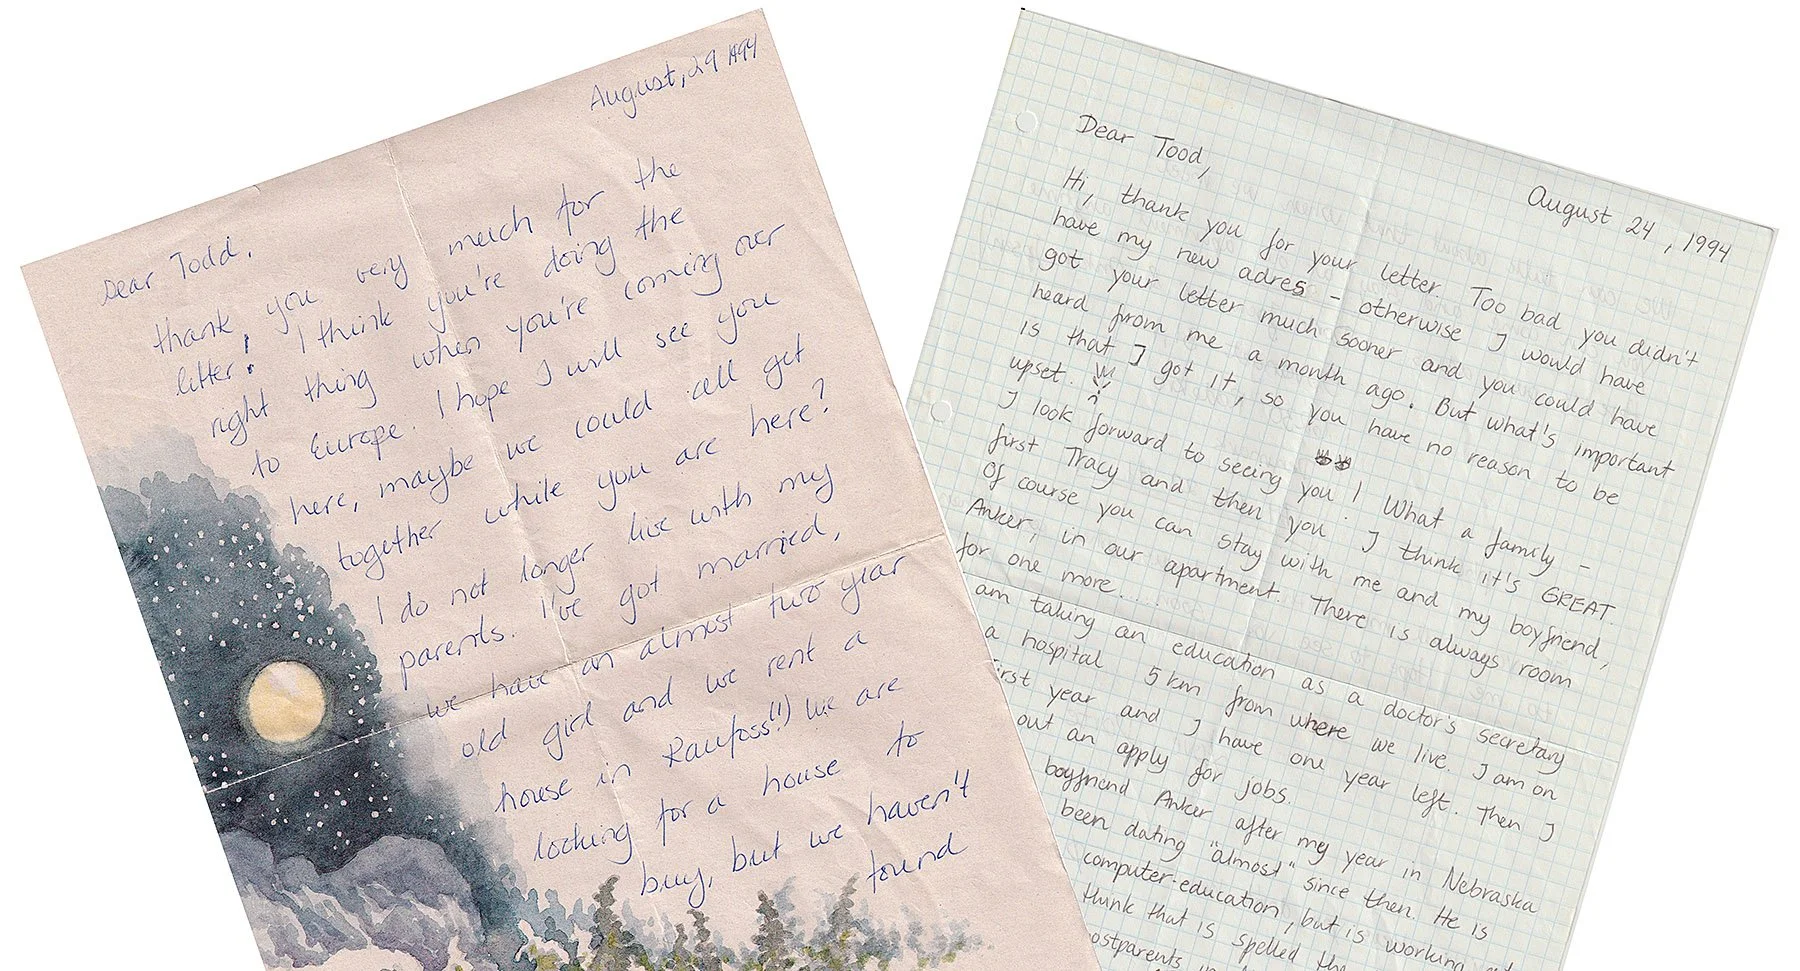 August, 29 1994
Dear Todd,
thank, you very much for the
litter! I think you're doing the
right thing when you're coming over
to Europe. I hope I will see you
here, maybe we could all get
together while you are here?
I do not longer live with my
parents. I've got married,
we have an almost two year
old girl and we rent a
house in Raufoss!!) We are
looking for a house to
buy, but we haven't
found
Dear Tood,
August 24, 1994
Hi, thank you for your letter. Too bad you didn't
have my new adres - otherwise I would have
got your letter much sooner and you could have
heard from me a month ago. But what's important
is that I got it, so you have no reason to be
upset.
I look forward to seeing you! What a family -
first Tracy and then you. I think it's GREAT.
Of course you can stay with me and my boyfriend,
Anker, in our apartment. There is always room
for one more....
am taking an education as a doctor's secretary
a hospital 5 km from where we live. I am on
first year and I have one year left. Then I
out an apply for jobs.
boyfriend Anker after my year in Nebraska
been dating "almost" since then. He is
computer-education, but is working
think that is spelled
ostparents